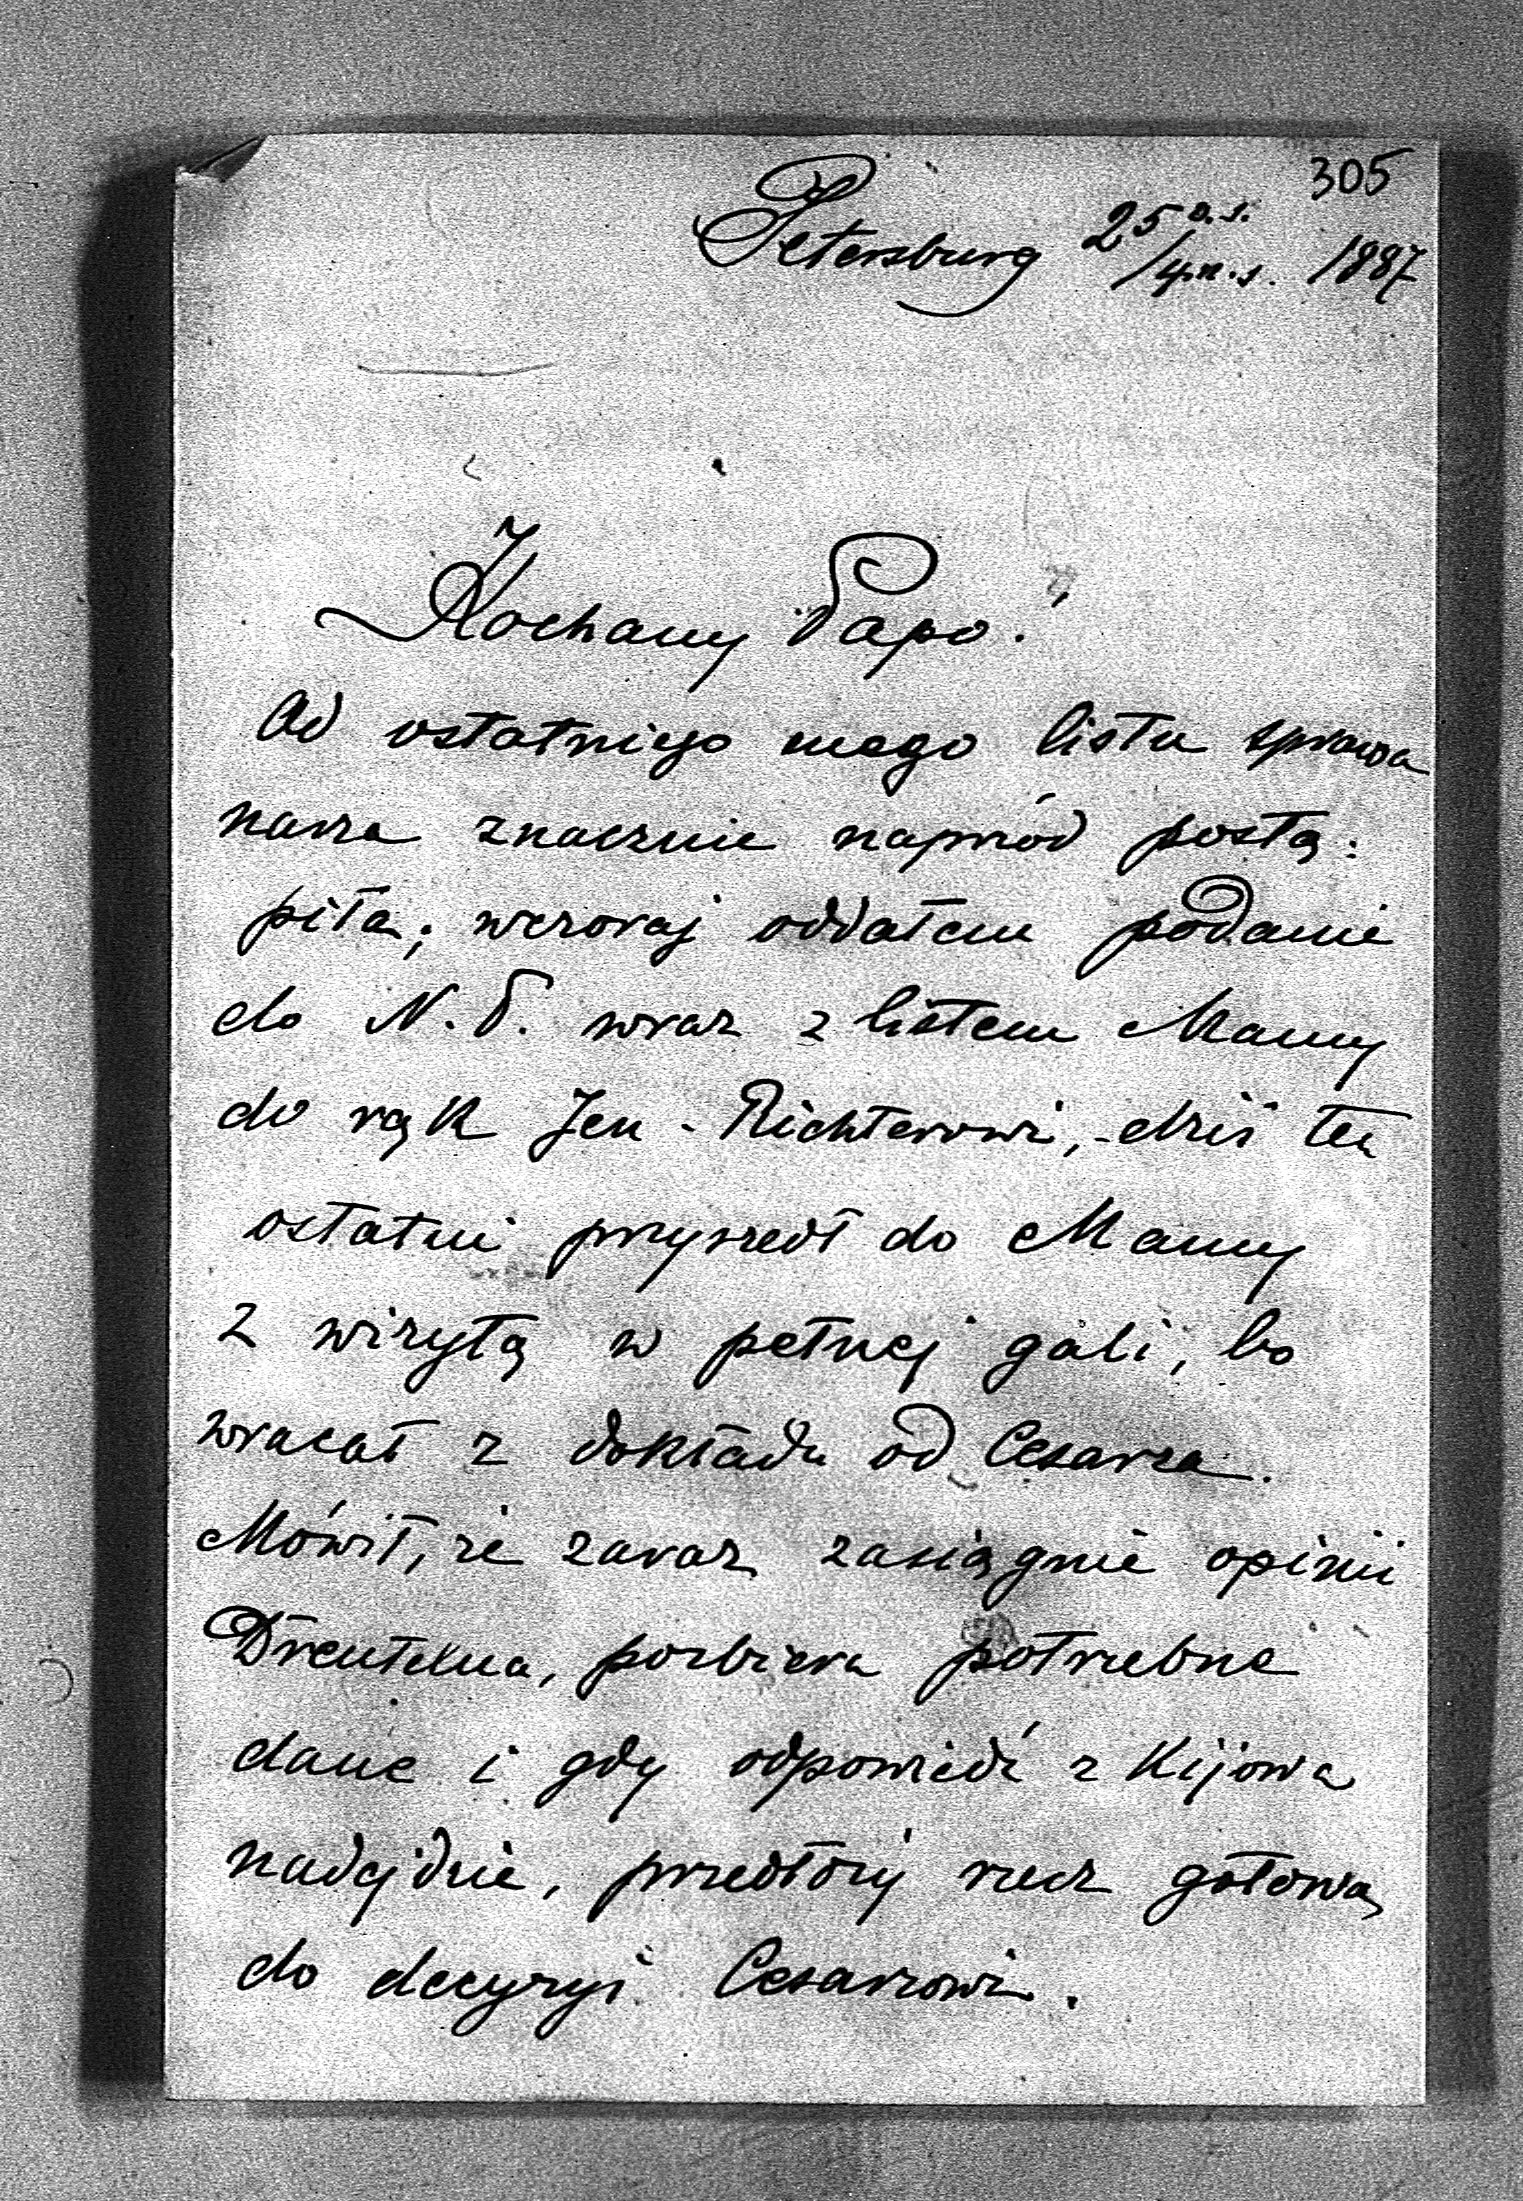 305
Petersburg 25 o.s./4.n.s. 1887
Kochany Papo!
Od ostatniego mego listu sprawa
nasza znacznie naprzód postą:
piła; wczoraj oddałem podanie
do N.P. wraz z listem Mamy
do rąk Jen. Richterowi, dziś ten
ostatni przyszedł do Mamy
z wizytą w pełnej gali, bo
wracał z dokładu od Cesarza.
Mówił, że zaraz zasiągnie opinii
Drentelna, pozbiera potrzebne
dane i gdy odpowiedź z Kijowa
nadejdzie, przedłoży rzecz gotową
do decyzyi Cesarzowi.